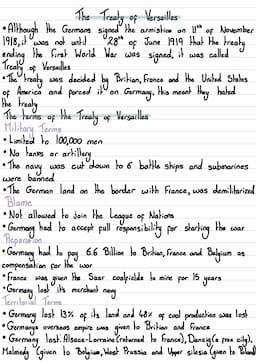 The Treaty of Versailles
• Although the Germans signed the armistice on 11th of November
1918, it was not until 28th of June 1919 that the treaty
ending the First World War was signed, it was called
Treaty of Versailles
• The treaty was decided by Britian, France and the United States
of America and forced it on Germany, this meant they hated
the treaty
The terms of the Treaty of Versailles
Military Terms
• Limited to 100,000 men
• No tanks or artillery
• The navy was cut down to 6 battle ships and submarines
were banned
• The German land on the border with France, was demilitarized
Blame
• Not allowed to join the League of Nations
• Germany had to accept full responsibility for starting the war
Reparation
• Germany had to pay 6.6 Billion to Britian, France and Belgium as
compensation for the war
• France was given the Saar coalfields to mine for 15 years
• Germany lost its merchant navy
Territorial Terms
• Germany lost 13% of its land and 48% of coal production was lost
• Germanys overseas empire was given to Britian and France
• Germany lost: Alsace-Lorraine (returned to France), Danzig (a free city),
Malmedy (given to Belgium, West Prussia and Upper silesia (given to Poland)